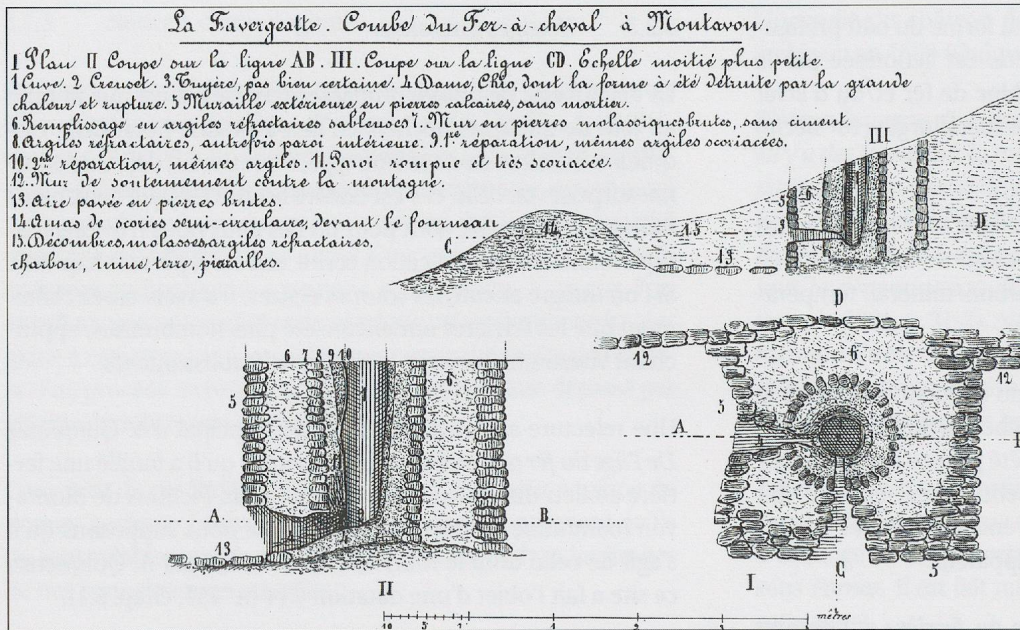 La Favergeatte. Combe du Fer à cheval à Montavon.
I Plan II Coupe sur la ligne AB. III. Coupe sur la ligne CD. Echelle moitié plus petite.
1 Cuve. 2 Creuset. 3. Tuyère, pas bien certaine. 4. Dame, Chio, dont la forme à été detruite par la grande
chaleur et rupture. 5 Muraille extérieure en pierres calcaires, sans mortier.
6. Remplissage en argiles réfractaires sableuses 7. Mur en pierres molassiques brutes, sans ciment.
8. Argiles réfractaires, autrefois paroi intérieure. 9. 1re réparation, mêmes argiles scoriacées.
10. 2me réparation, mêmes argiles. 11. Paroi rompue et très scoriacée.
12. Mur de soutennement contre la montagne.
13. Aire pavée en pierres brutes.
14. Amas de scories semi-circulaire, devant le fourneau
15. Décombres, molasses, argiles réfractaires.
charbon, mine, terre, pierailles.
III
5 6
C 14 15 D
13
D
12 6 12
5
A
I C 5
6 7 8 9 10
5 1 6
11
A. B.
13
II
10 5 1
mètres